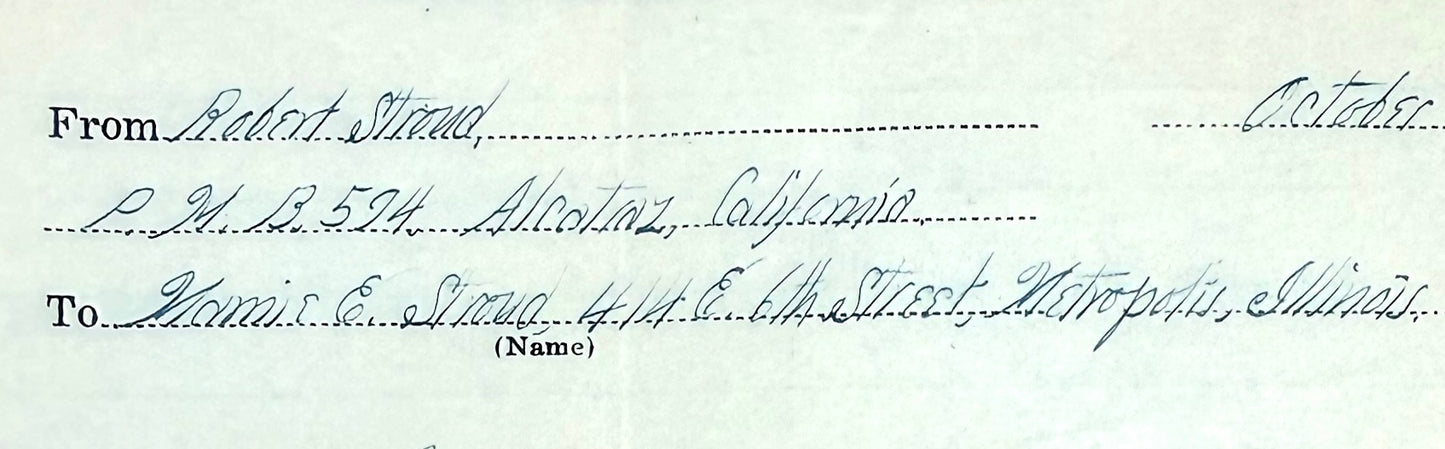 From Robert Stroud, October
P. M. B. 594. Alcatraz, California.
To Mamie E. Stroud, 414 E. 6th Street, Metropolis, Illinois.
(Name)